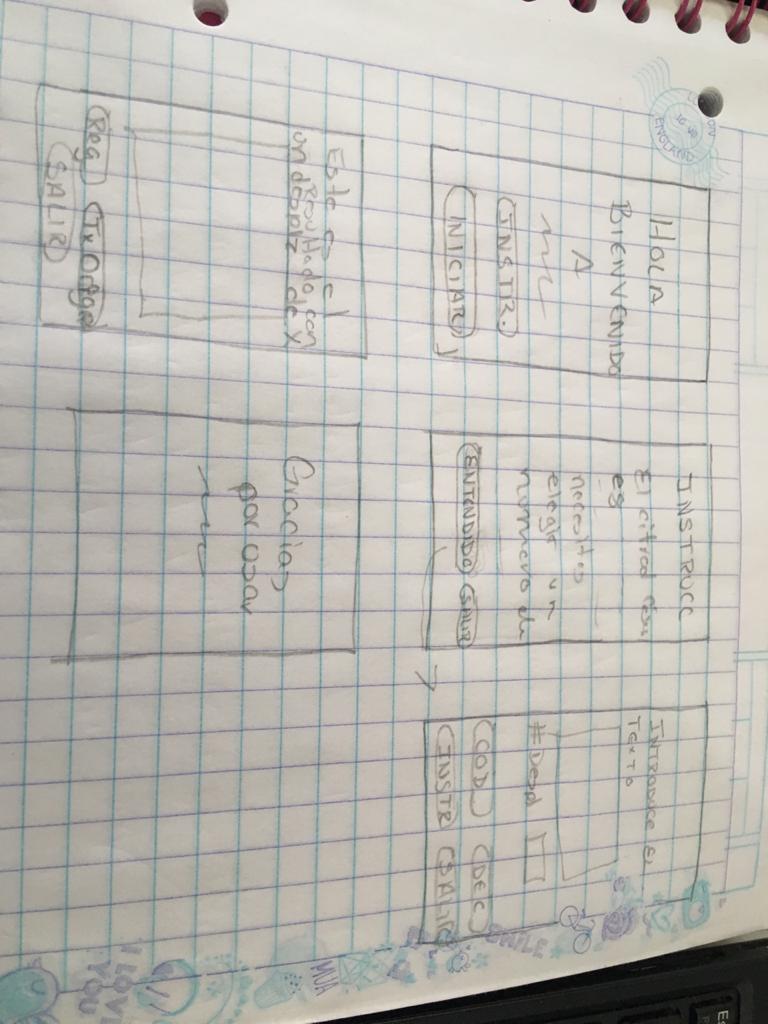 HOLA
BIENVENIDO
A
INSTR.
INICIAR
INSTRUCC
El cifrad
es
necesitas
elegir un
numero de
ENTENDIDO SALIR
INTRODUCE EL
TEXTO
#Despl
COD DEC
INSTR SALIR
Este es el
Resultado con
un desplz de X
Reg Tx Orige
SALIR
Gracias
por usar
LONDON
ENGLAND
MUA
I LOVE
YOU
Es